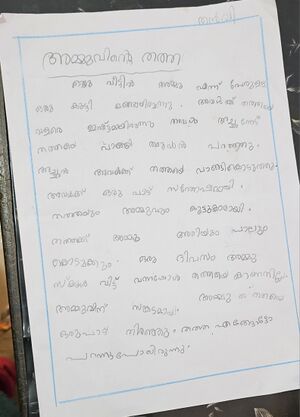 തൻവി
അമ്മുവിന്റെ തത്ത
ഒരു വീട്ടിൽ അമ്മു എന്ന് പേരുള്ള
ഒരു കുട്ടി ഉണ്ടായിരുന്നു. അവൾക്ക് തത്തയെ
വളരെ ഇഷ്ടമായിരുന്നു. അവൾ അച്ഛനോട്
തത്തയെ വാങ്ങി തരാൻ പറഞ്ഞു.
അച്ഛൻ അവൾക്ക് തത്തയെ വാങ്ങികൊടുത്തു.
അവൾക്ക് ഒരു പാട് സന്തോഷമായി.
തത്തയും അമ്മുവും കൂട്ടുകാരായി.
തത്തക്ക് അമ്മു അരിയും പാലും
കൊടുക്കും. ഒരു ദിവസം അമ്മു
സ്കൂൾ വിട്ട് വന്നപ്പോൾ തത്തയെ കാണാനില്ല.
അമ്മുവിന് സങ്കടമായി. അമ്മു തത്തയെ
ഒരുപാട് തിരഞ്ഞു. തത്ത എങ്ങോട്ടോ
പറന്നുപോയിരുന്നു.